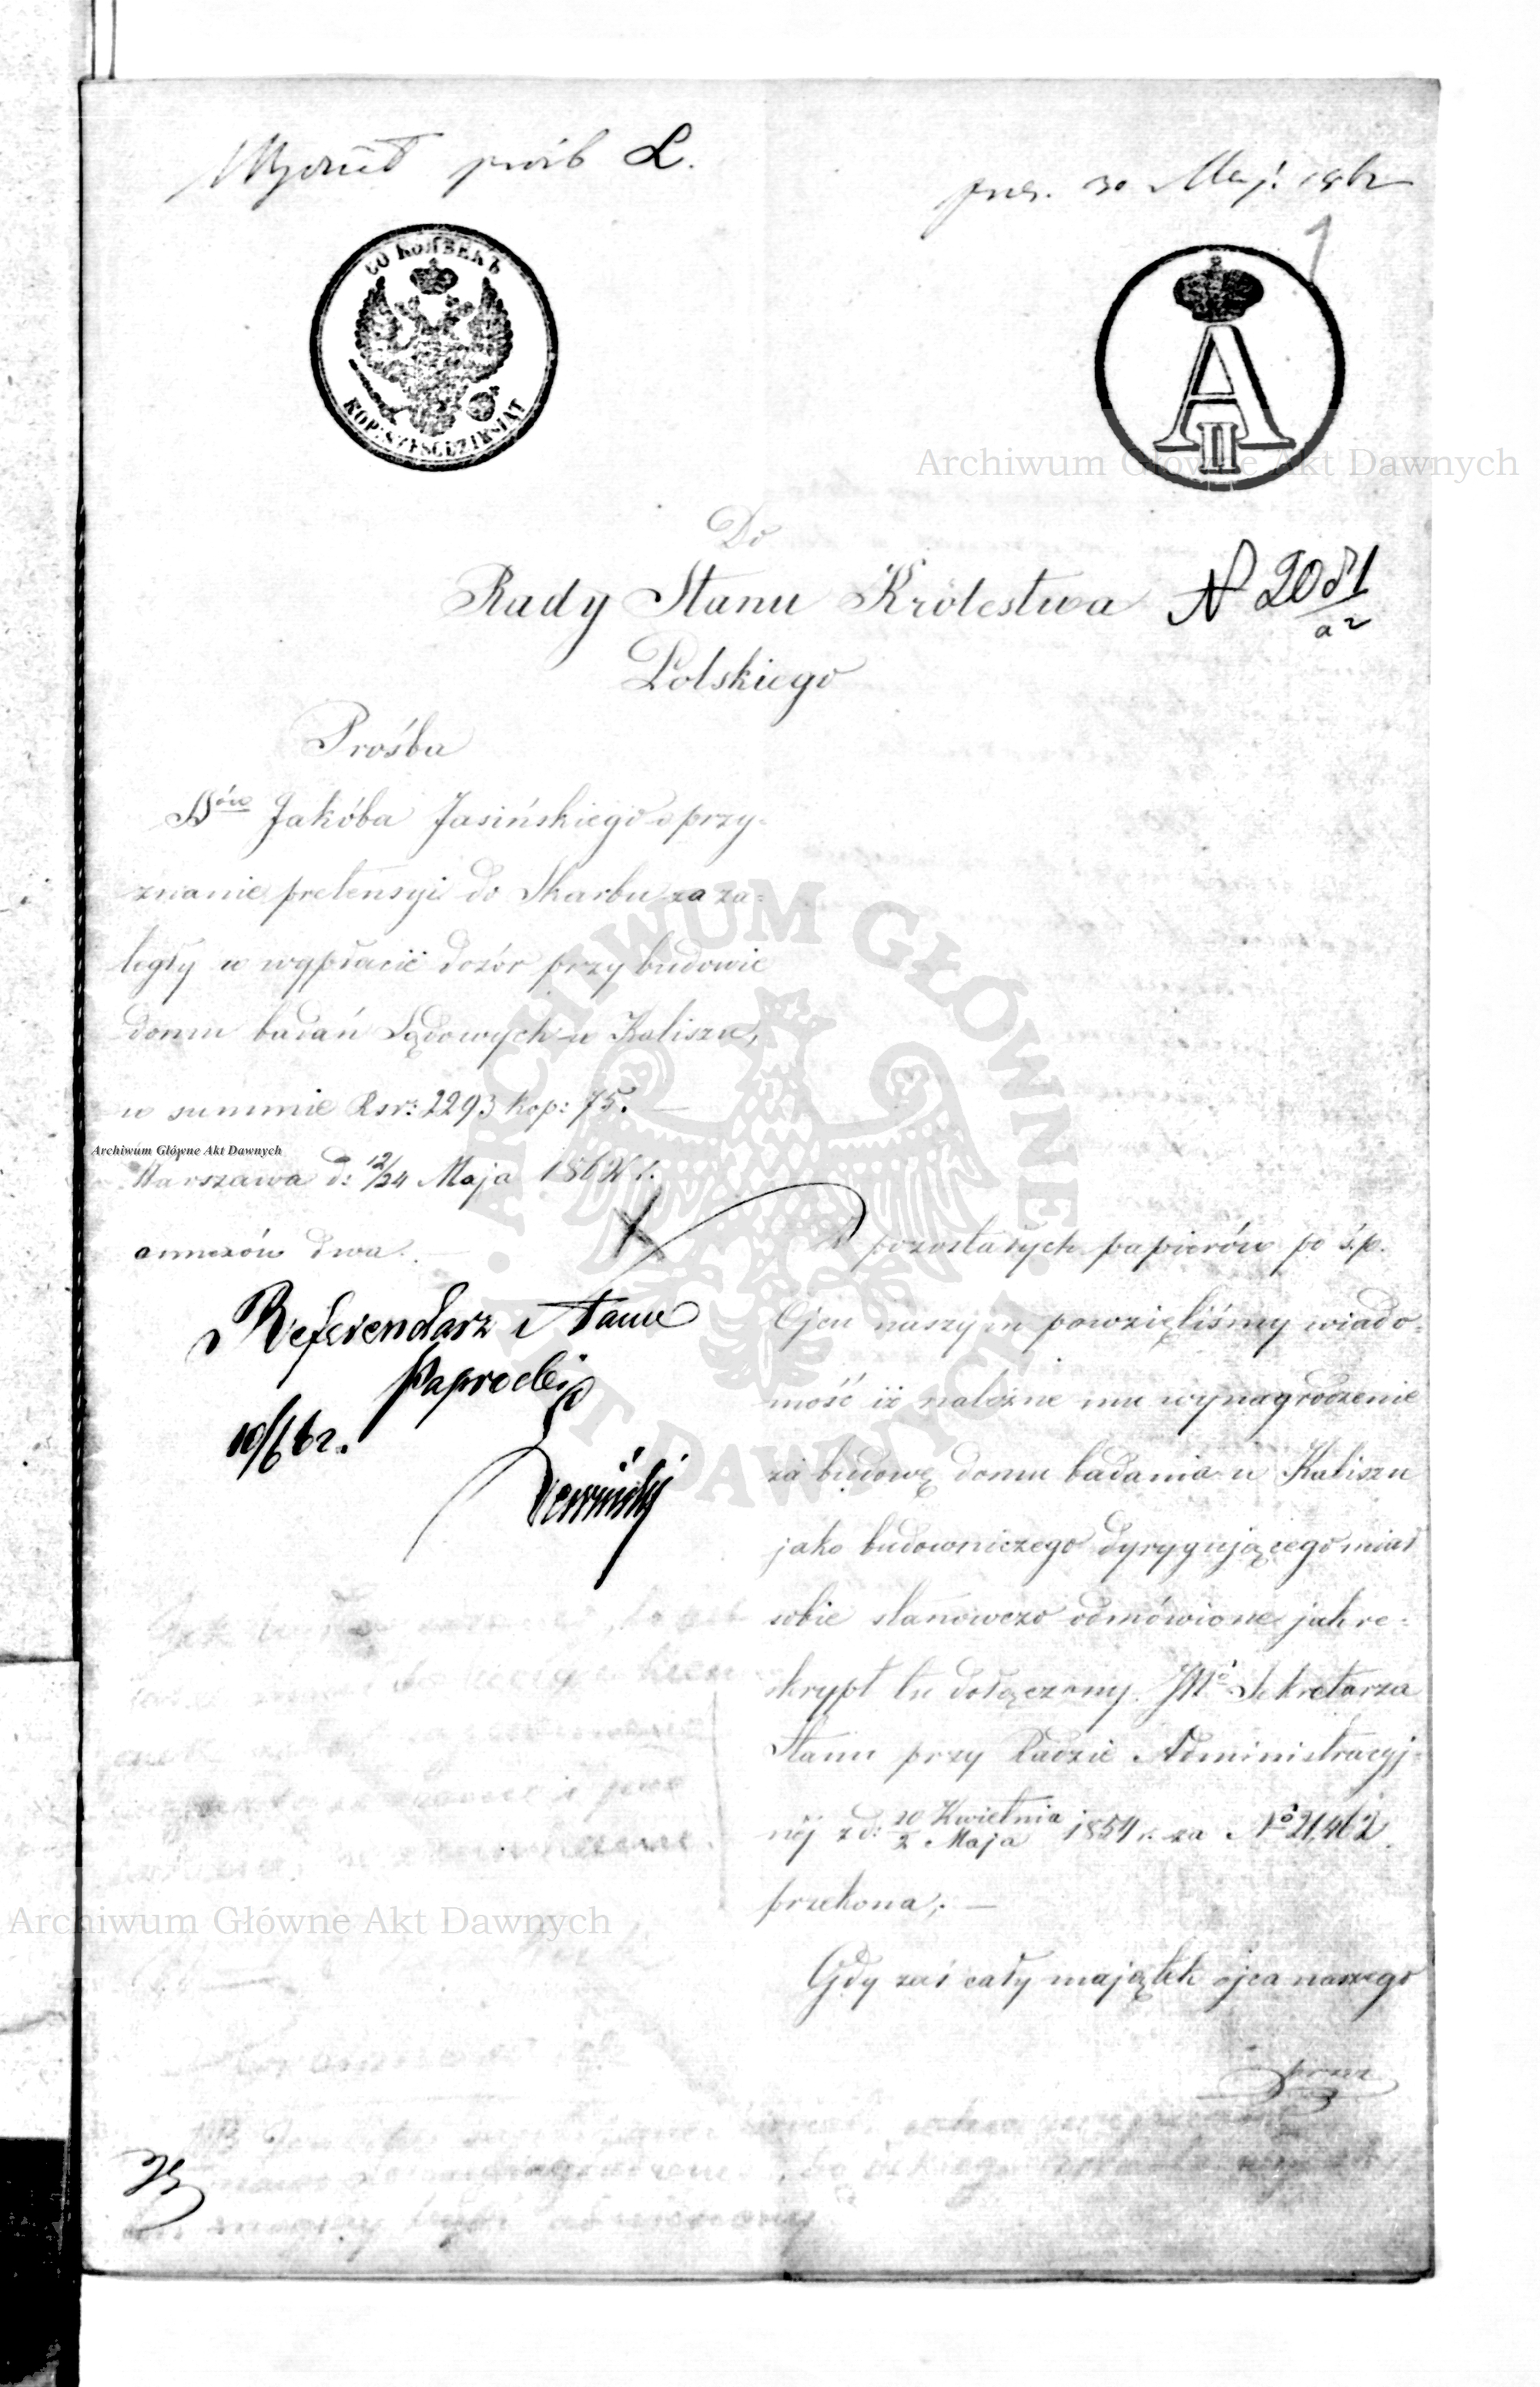 Wydział próśb L.
pres. 30 Maj: 1862
1
60 КОПѢЕКЪ
KOP: SZEŚĆDZIESIĄT
A II
Archiwum Główne Akt Dawnych
Do
Rady Stanu Królestwa
N 2081
a 2
Polskiego
Prośba
Sów Jakóba Jasińskiego o przy-
znanie pretensyi do Skarbu za za-
legły w wypłacie dozór przy budowie
domu badań Sądowych w Kaliszu,
w summie Rsr: 2293 kop: 75. —
Archiwum Główne Akt Dawnych
Warszawa d: 12/24 Maja 1862 r.
annexów dwa. —
Referendarz Stanu
Paprocki
10/6 62.
Z pozostałych papierów po ś.p.
Ojcu naszym powzięliśmy wiado-
mość iż należne mu wynagrodzenie
za budowę domu badania w Kaliszu
jako budowniczego dyrygującego miał
sobie stanowczo odmówione jak re-
skrypt tu dołączony JWo Sekretarza
Stanu przy Radzie Administracyj-
néj z d: 20 Kwietnia / 2 Maja 1854 r. za No 21,462
przekona; —
Gdy zaś cały majątek ojca naszego
przez
Archiwum Główne Akt Dawnych
ARCHIWUM GŁÓWNE AKT DAWNYCH